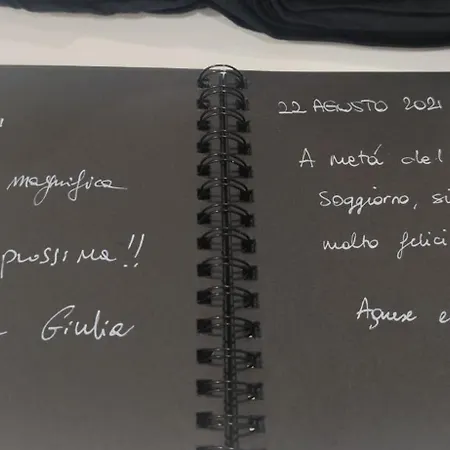 magnifica
prossima!!
Giulia
22 AGOSTO 2021
A metá del
soggiorno, si
molto felici
Agnese e